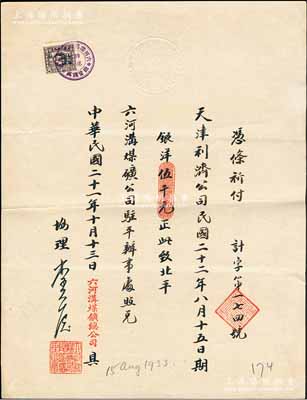 憑條祈付 計字第一七四號
天津利濟公司民國二十二年八月十五日期
銀洋伍千元正此致北平
六河溝煤鑛公司駐平辦事處照兌
中華民國二十一年十月十三日
六河溝煤鑛總公司 具
協理
15 Aug 1933.
174